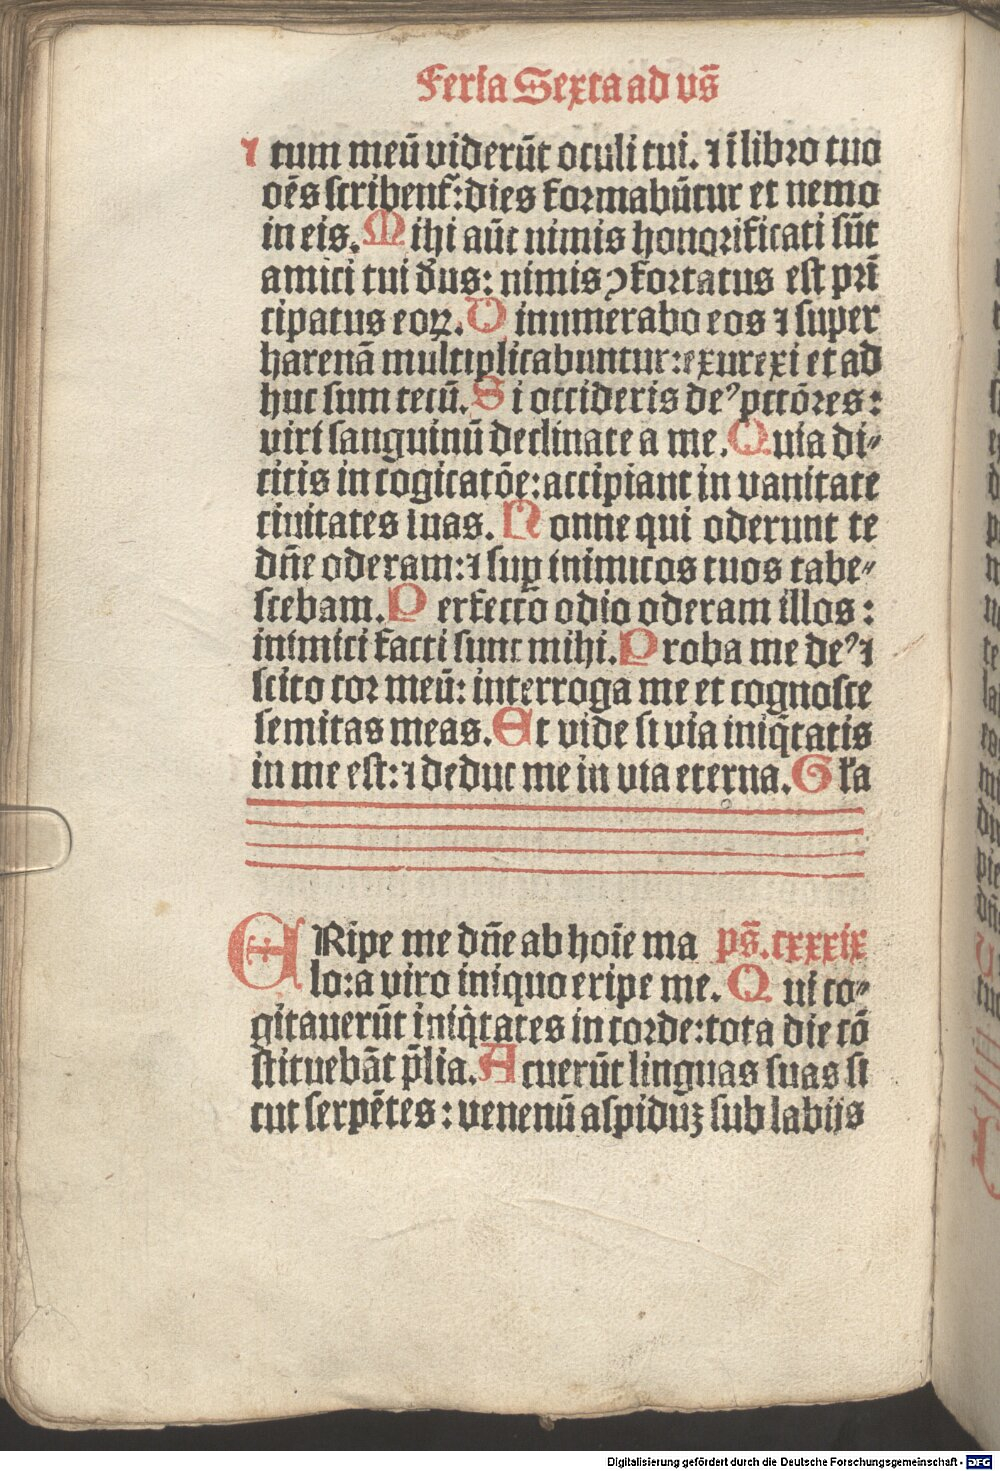 Feria Sexta ad vs̄
I ctum meū viderūt oculi tui. ⁊ ī libro tuo
oēs scribent᷑: dies formabūtur et nemo
in eis. Mihi aūt nimis honorificati sūt
amici tui d̄us: nimis ꝯfortatus est prī
cipatus eoꝝ. Dinumerabo eos ⁊ super
harenā multiplicabuntur: exurexi et ad
huc sum tecū. Si occideris deꝰ pctōres:
viri sanguinū declinate a me. Quia di⸗
citis in cogitatōe: accipiant in vanitate
ciuitates suas. Nonne qui oderunt te
dn̄e oderam: ⁊ suꝑ inimicos tuos tabe⸗
scebam. Perfecto odio oderam illos:
inimici facti sunt mihi. Proba me deꝰ ⁊
scito cor meū: interroga me et cognosce
semitas meas. Et vide si via iniq̄tatis
in me est: ⁊ deduc me in via eterna. Gl̄a
ERipe me dn̄e ab hoīe ma ps̄. cxxxix
lo: a viro iniquo eripe me. Qui co⸗
gitauerūt iniq̄tates in corde: tota die cō
stituebāt p̄lia. Acuerūt linguas suas si
cut serpētes: venenū aspidūꝫ sub labijs
Digitalisierung gefördert durch die Deutsche Forschungsgemeinschaft - DFG